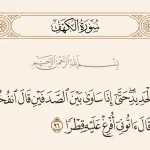 سُورَةُ الكَهْفِ
بِسْمِ اللَّهِ الرَّحْمَٰنِ الرَّحِيمِ
ٱلْحَدِيدِ ۖ حَتَّىٰٓ إِذَا سَاوَىٰ بَيْنَ ٱلصَّدَفَيْنِ قَالَ ٱنفُخُ
قَالَ ءَاتُونِىٓ أُفْرِغْ عَلَيْهِ قِطْرًا ٩٦